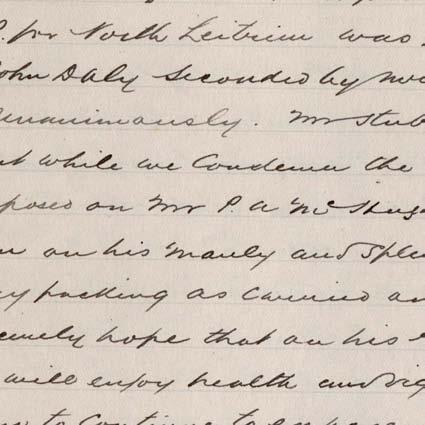 P. for North Leitrim was
John Daly seconded by
unanimously. Mr
while we condemn the
on Mr P. A Mc Hugh
on his manly and
packing as carried
hope that on his
will enjoy health and
to continue to